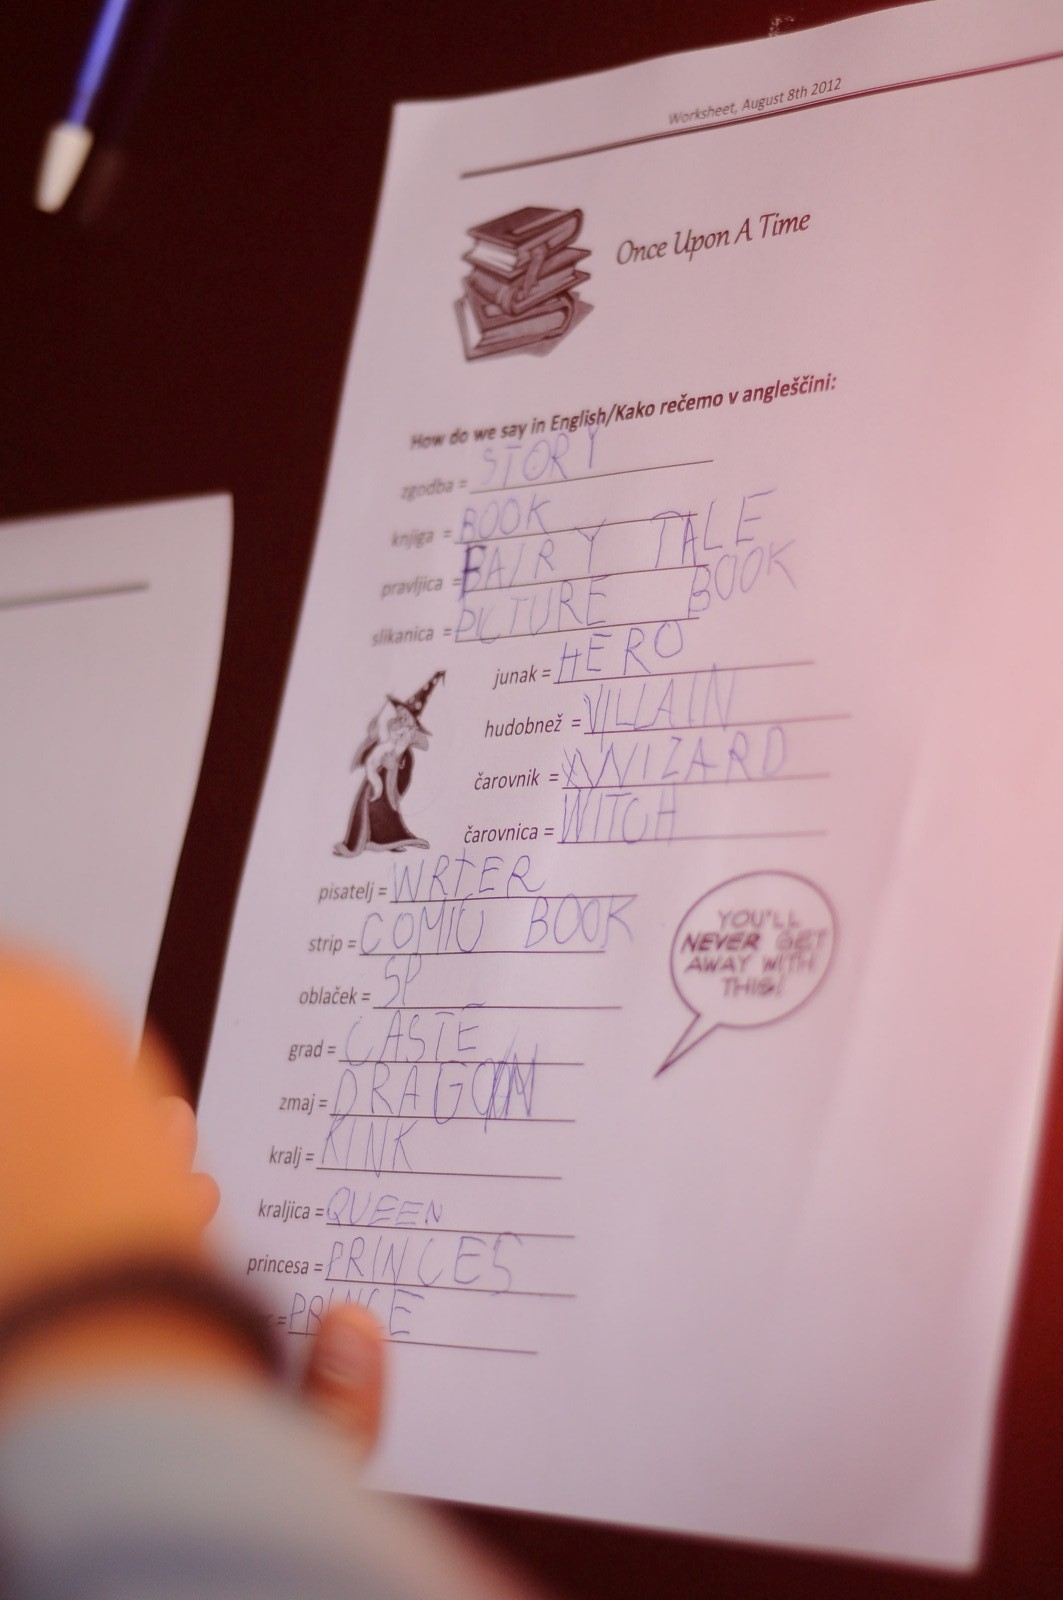 Worksheet, August 8th 2012
Once Upon A Time
How do we say in English/Kako rečemo v angleščini:
zgodba = STORY
knjiga = BOOK
pravljica = FAIRY TALE
slikanica = PICTURE BOOK
junak = HERO
hudobnež = VILLAIN
čarovnik = WIZARD
čarovnica = WITCH
pisatelj = WRITER
strip = COMIC BOOK
oblaček = SP
grad = CASTE
zmaj = DRAGON
kralj = KINK
kraljica = QUEEN
princesa = PRINCES
= PRINCE
YOU'LL
NEVER GET
AWAY WITH
THIS!